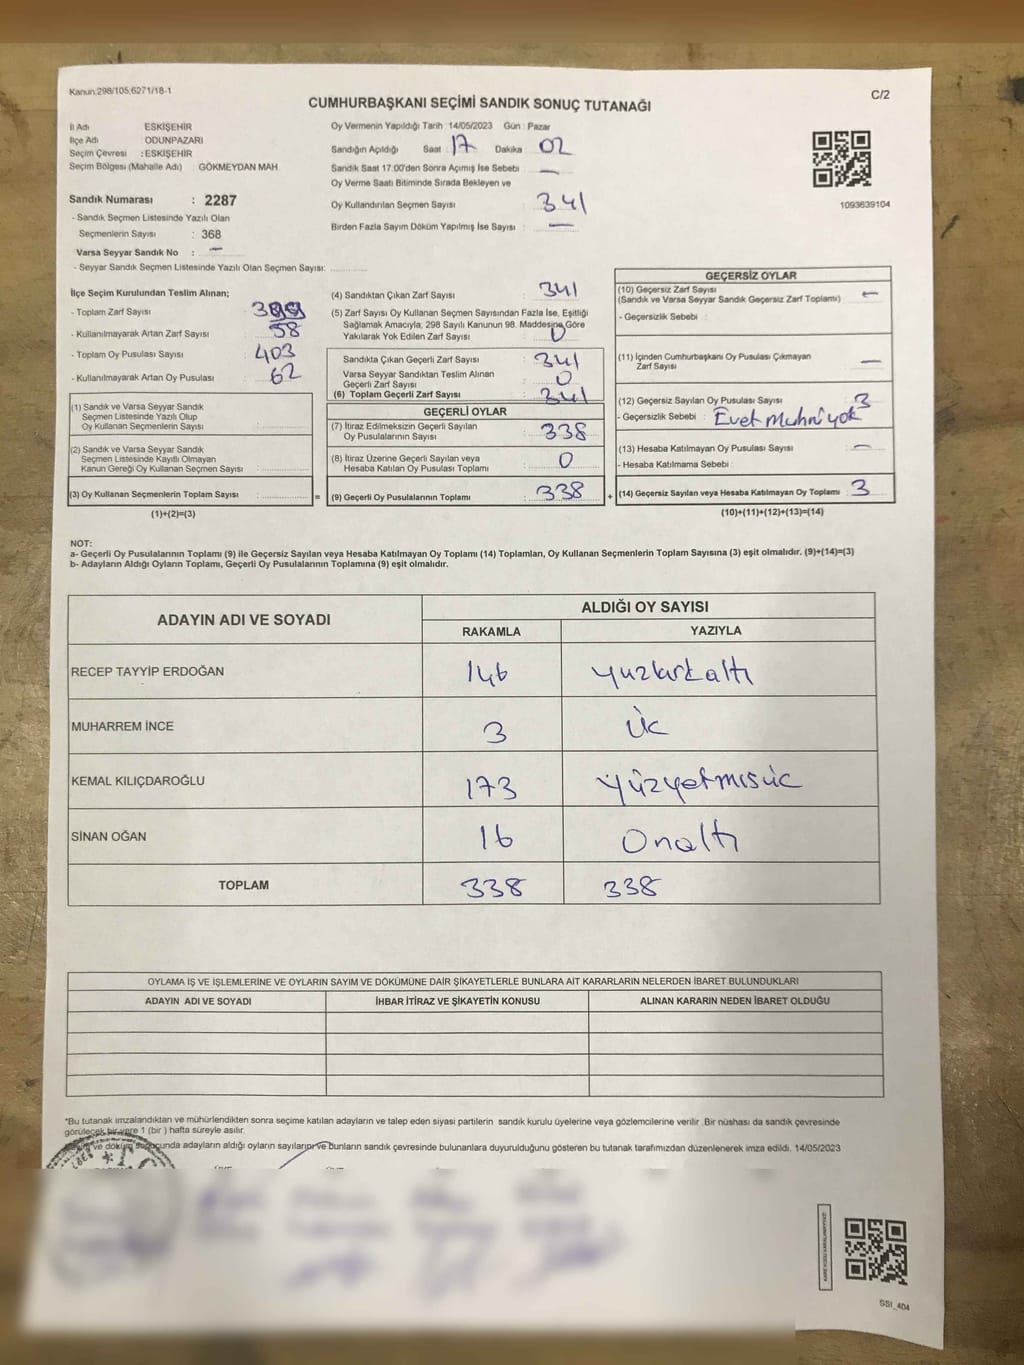 Kanun:298/105;6271/18-1
C/2
CUMHURBAŞKANI SEÇİMİ SANDIK SONUÇ TUTANAĞI
İl Adı ESKİŞEHİR
İlçe Adı ODUNPAZARI
Seçim Çevresi : ESKİŞEHİR
Seçim Bölgesi (Mahalle Adı) : GÖKMEYDAN MAH
Sandık Numarası : 2287
- Sandık Seçmen Listesinde Yazılı Olan
Seçmenlerin Sayısı : 368
Varsa Seyyar Sandık No : —
- Seyyar Sandık Seçmen Listesinde Yazılı Olan Seçmen Sayısı:
Oy Vermenin Yapıldığı Tarih : 14/05/2023 Gün : Pazar
Sandığın Açıldığı Saat : 17 Dakika : 02
Sandık Saat 17:00'den Sonra Açımış İse Sebebi —
Oy Verme Saati Bitiminde Sırada Bekleyen ve
Oy Kullandırılan Seçmen Sayısı : 341
Birden Fazla Sayım Döküm Yapılmış İse Sayısı : —
1093639104
İlçe Seçim Kurulundan Teslim Alınan;
- Toplam Zarf Sayısı :
- Kullanılmayarak Artan Zarf Sayısı : 58
- Toplam Oy Pusulası Sayısı : 403
- Kullanılmayarak Artan Oy Pusulası : 62
(1) Sandık ve Varsa Seyyar Sandık
Seçmen Listesinde Yazılı Olup
Oy Kullanan Seçmenlerin Sayısı :
(2) Sandık ve Varsa Seyyar Sandık
Seçmen Listesinde Kayıtlı Olmayan
Kanun Gereği Oy Kullanan Seçmen Sayısı :
(3) Oy Kullanan Seçmenlerin Toplam Sayısı : =
(1)+(2)=(3)
(4) Sandıktan Çıkan Zarf Sayısı : 341
(5) Zarf Sayısı Oy Kullanan Seçmen Sayısından Fazla İse, Eşitliği
Sağlamak Amacıyla, 298 Sayılı Kanunun 98. Maddesine Göre
Yakılarak Yok Edilen Zarf Sayısı : 0
Sandıkta Çıkan Geçerli Zarf Sayısı : 341
Varsa Seyyar Sandıktan Teslim Alınan
Geçerli Zarf Sayısı : 0
(6) Toplam Geçerli Zarf Sayısı : 341
GEÇERLİ OYLAR
(7) İtiraz Edilmeksizin Geçerli Sayılan
Oy Pusulalarının Sayısı : 338
(8) İtiraz Üzerine Geçerli Sayılan veya
Hesaba Katılan Oy Pusulası Toplamı : 0
(9) Geçerli Oy Pusulalarının Toplamı : 338 +
GEÇERSİZ OYLAR
(10) Geçersiz Zarf Sayısı : —
(Sandık ve Varsa Seyyar Sandık Geçersiz Zarf Toplamı)
- Geçersizlik Sebebi :
(11) İçinden Cumhurbaşkanı Oy Pusulası Çıkmayan
Zarf Sayısı : —
(12) Geçersiz Sayılan Oy Pusulası Sayısı : 3
- Geçersizlik Sebebi : Evet Muhrü yok
(13) Hesaba Katılmayan Oy Pusulası Sayısı : —
- Hesaba Katılmama Sebebi :
(14) Geçersiz Sayılan veya Hesaba Katılmayan Oy Toplamı : 3
(10)+(11)+(12)+(13)=(14)
NOT:
a- Geçerli Oy Pusulalarının Toplamı (9) ile Geçersiz Sayılan veya Hesaba Katılmayan Oy Toplamı (14) Toplamları, Oy Kullanan Seçmenlerin Toplam Sayısına (3) eşit olmalıdır. (9)+(14)=(3)
b- Adayların Aldığı Oyların Toplamı, Geçerli Oy Pusulalarının Toplamına (9) eşit olmalıdır.
ADAYIN ADI VE SOYADI ALDIĞI OY SAYISI
RAKAMLA YAZIYLA
RECEP TAYYİP ERDOĞAN 146 yuzkırkaltı
MUHARREM İNCE 3 Üç
KEMAL KILIÇDAROĞLU 173 yüzyetmısüc
SİNAN OĞAN 16 Onaltı
TOPLAM 338 338
OYLAMA İŞ VE İŞLEMLERİNE VE OYLARIN SAYIM VE DÖKÜMÜNE DAİR ŞİKAYETLERLE BUNLARA AİT KARARLARIN NELERDEN İBARET BULUNDUKLARI
ADAYIN ADI VE SOYADI İHBAR İTİRAZ VE ŞİKAYETİN KONUSU ALINAN KARARIN NEDEN İBARET OLDUĞU
*Bu tutanak imzalandıktan ve mühürlendikten sonra seçime katılan adayların ve talep eden siyasi partilerin sandık kurulu üyelerine veya gözlemcilerine verilir .Bir nüshası da sandık çevresinde
görülecek bir yere 1 (bir ) hafta süreyle asılır.
ve döküm sonucunda adayların aldığı oyların sayılarını ve bunların sandık çevresinde bulunanlara duyurulduğunu gösteren bu tutanak tarafımızdan düzenlenerek imza edildi. 14/05/2023
SSI_404